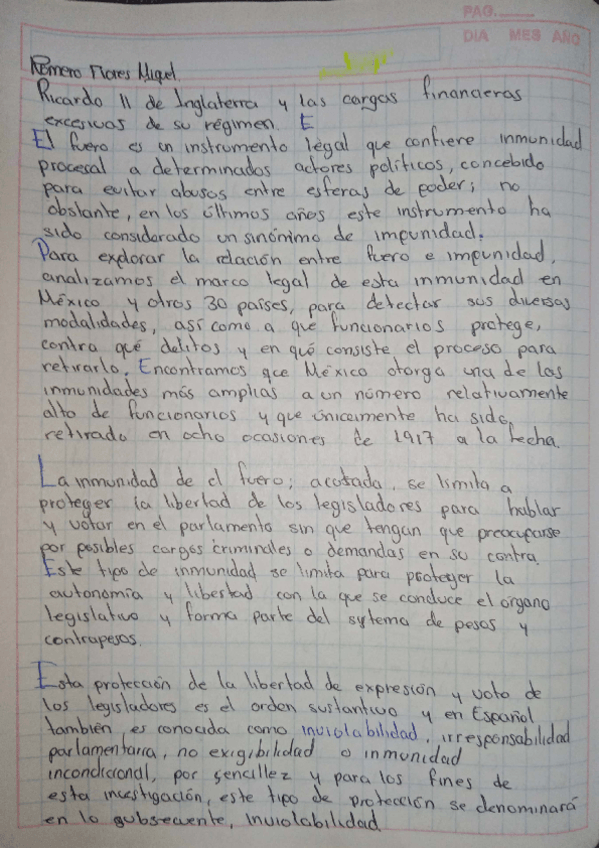 PAG.
DIA MES AÑO
Romero Flores Miguel
Ricardo II de Inglaterra y las cargas financieras
excesivas de su régimen. E
El fuero es un instrumento legal que confiere inmunidad
procesal a determinados actores políticos, concebido
para evitar abusos entre esferas de poder; no
obstante, en los últimos años este instrumento ha
sido considerado un sinónimo de impunidad.
Para explorar la relación entre fuero e impunidad,
analizamos el marco legal de esta inmunidad en
México y otros 30 países, para detectar sus diversas
modalidades, así como a que funcionarios protege,
contra qué delitos y en qué consiste el proceso para
retirarlo. Encontramos que México otorga una de las
inmunidades más amplias a un número relativamente
alto de funcionarios y que únicamente ha sido
retirado en ocho ocasiones de 1917 a la fecha.
La inmunidad de el fuero; acotada, se limita a
proteger la libertad de los legisladores para hablar
y votar en el parlamento sin que tengan que preocuparse
por posibles cargos criminales o demandas en su contra.
Este tipo de inmunidad se limita para proteger la
autonomía y libertad con la que se conduce el órgano
legislativo y forma parte del sytema de pesos y
contrapesos.
Esta protección de la libertad de expresión y voto de
los legisladores es el orden sustantivo y en Español
también es conocida como inviolabilidad, irresponsabilidad
parlamentaria, no exigibilidad o inmunidad
incondicional, por sencillez y para los fines de
esta investigación, este tipo de protección se denominará
en lo subsecuente, inviolabilidad.